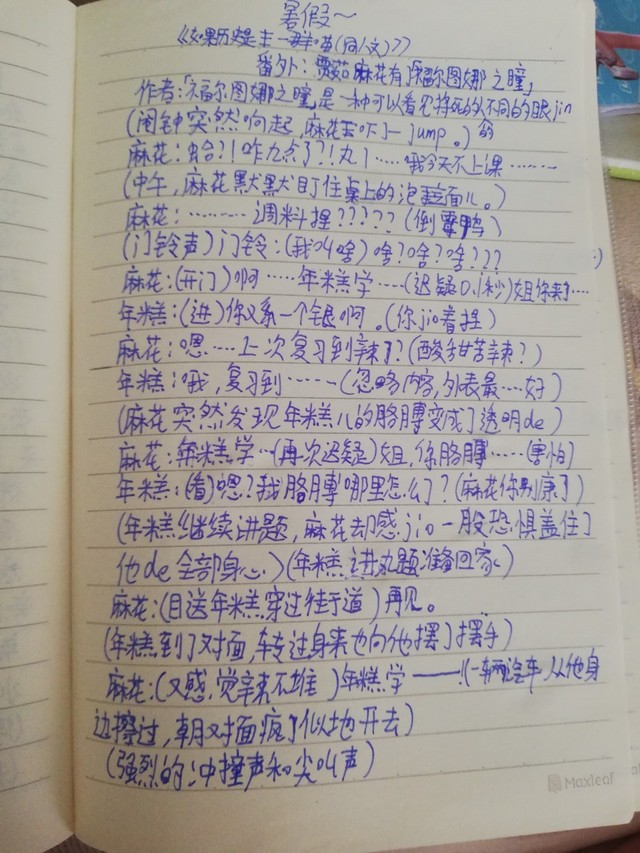 暑假～
《如果历史是一群喵(同人文)》
番外：蘑菇麻花有「福尔图娜之瞳」
作者：「福尔图娜之瞳」是一种可以看见将死的人不同的的眼jin
(闹钟突然响起，麻花吓了一jump。)
麻花：蛤？！咋九点了？！丸了……哦今天不上课………
(中午，麻花默默盯住桌上的泡面儿。)
麻花：………调料捏？？？？？(倒霉鸭)
(门铃声)门铃：(我叫啥)啥？啥？啥？？？
麻花：(开门)啊……年糕学……(迟疑0.1秒)姐你来了……
年糕：(进)你又系一个银啊。(你jio着捏)
麻花：嗯……上次复习到辣了？(酸甜苦辣？)
年糕：哦，复习到……(忽略内容，外表最…好)
(麻花突然发现年糕儿的胳膊变成了透明de)
麻花：年糕学…(再次迟疑)姐，你胳膊……(害怕)
年糕：(看)嗯？我胳膊哪里怎么了？(麻花你别康了)
(年糕继续讲题，麻花却感jio一股恐惧盖住了
他de全部身心)(年糕讲丸题准备回家)
麻花：(目送年糕穿过街道)再见。
(年糕到了对面，转过身来也向他摆了摆手)
麻花：(又感觉辣不堆)年糕学——！(一辆汽车，从他身
边擦过，朝对面疯了似地开去)
(强烈的冲撞声和尖叫声)
Maxleaf